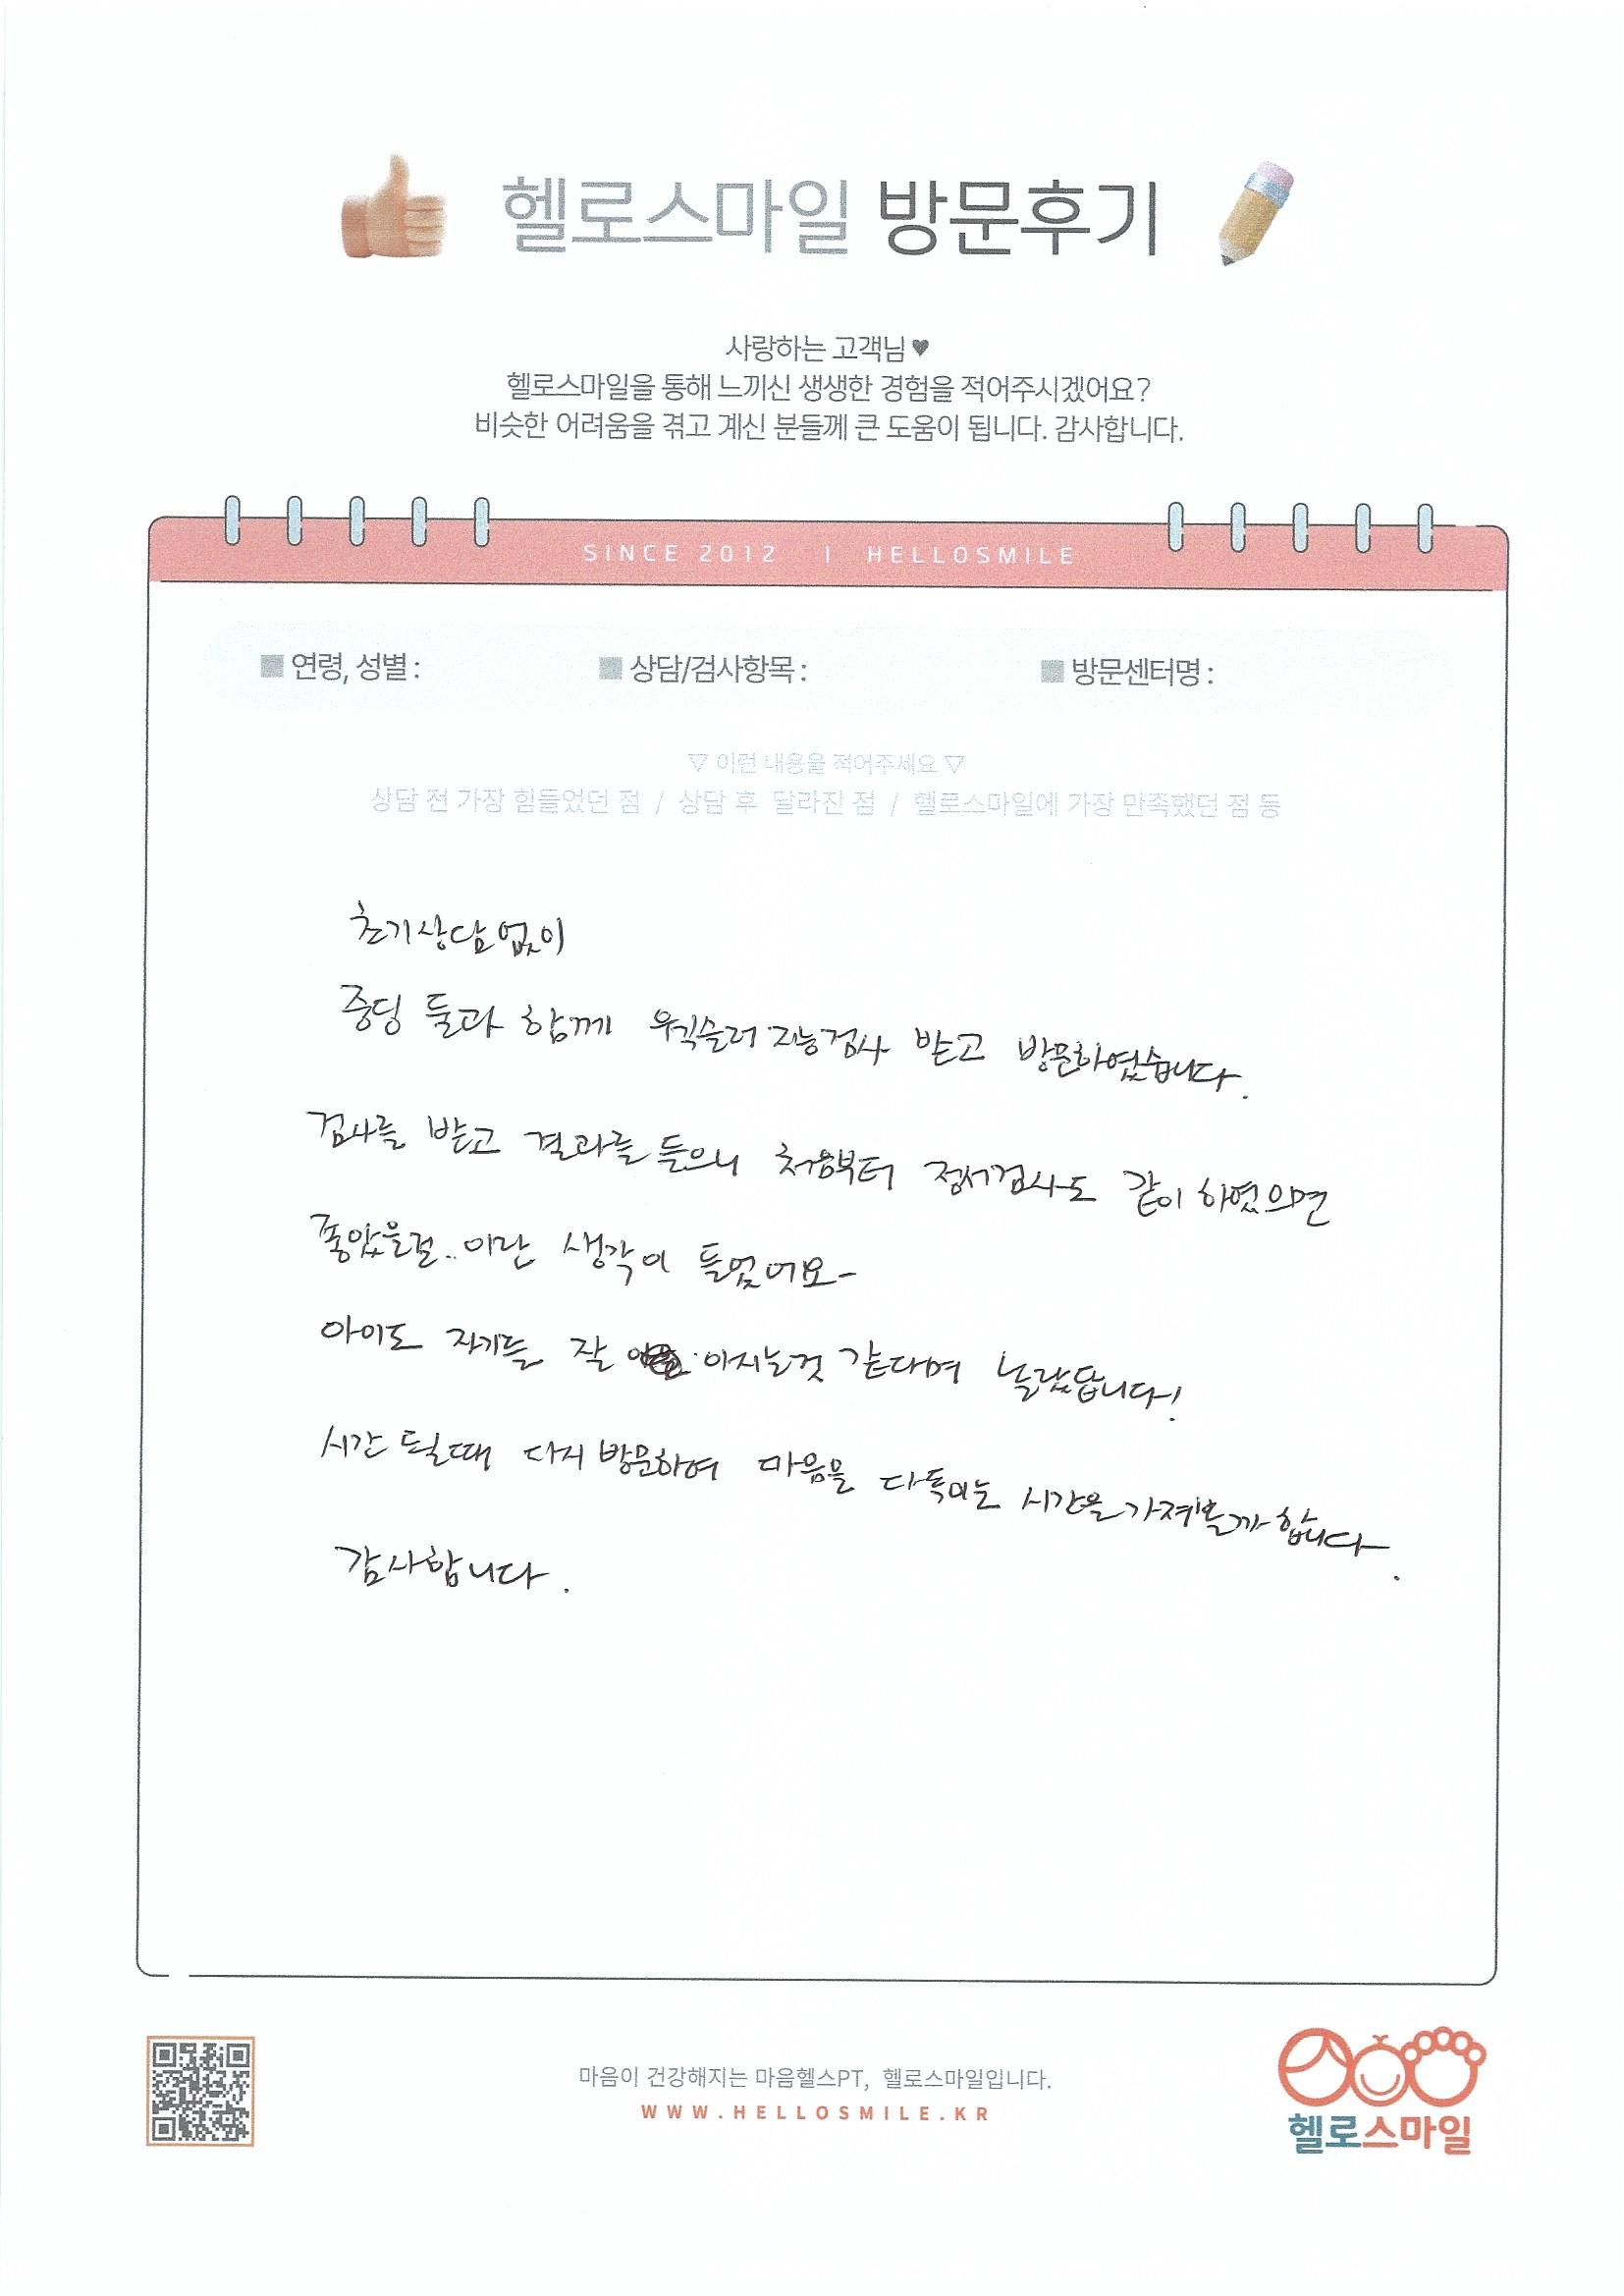 헬로스마일 방문후기
사랑하는 고객님♥
헬로스마일을 통해 느끼신 생생한 경험을 적어주시겠어요?
비슷한 어려움을 겪고 계신 분들께 큰 도움이 됩니다. 감사합니다.
SINCE 2012 | HELLOSMILE
■ 연령, 성별 : ■ 상담/검사항목 : ■ 방문센터명 :
▽ 이런 내용을 적어주세요 ▽
상담 전 가장 힘들었던 점 / 상담 후 달라진 점 / 헬로스마일에 가장 만족했던 점 등
초기상담없이
중딩 둘과 함께 웩슬러 지능검사 받고 방문하였습니다.
검사를 받고 결과를 들으니 처음부터 정서검사도 같이 하였으면
좋았을걸.. 이란 생각이 들었어요-
아이도 자기를 잘 아시는것 같다며 놀랐답니다!
시간 될때 다시 방문하여 마음을 다독이는 시간을 가져볼까 합니다.
감사합니다.
마음이 건강해지는 마음헬스PT, 헬로스마일입니다.
WWW.HELLOSMILE.KR
헬로스마일